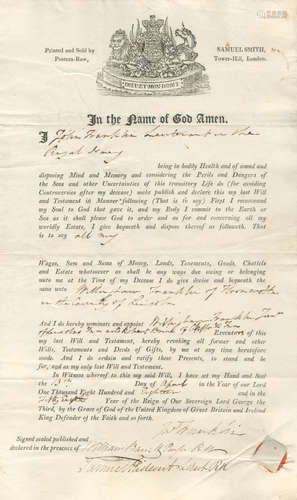 Printed and Sold by
Postern-Row,
SAMUEL SMITH,
Tower-Hill, London.
DIEU ET MON DROIT
In the Name of God Amen.
I John Franklin Lieutenant in the
Royal Navy
being in bodily Health and of sound and
disposing Mind and Memory and considering the Perils and Dangers
of the Seas and other Uncertainties of this transitory Life do (for avoiding
Controversies after my decease) make publish and declare this my last Will
and Testament in Manner following (That is to say) First I recommend
my Soul to God that gave it, and my Body I commit to the Earth or
Sea as it shall please God to order and as for and concerning all my
worldly Estate, I give bequeath and dispose thereof as followeth. That
is to say all my
Wages, Sum and Sums of Money, Lands, Tenements, Goods, Chattels
and Estate whatsoever as shall be any ways due owing or belonging
unto me at the Time of my Decease I do give devise and bequeath the
same unto Willingham Franklin of Horncastle
in the County of Lincoln
And I do hereby nominate and appoint Willingham Franklin
Executors of this
my last Will and Testament, hereby revoking all former and other
Wills, Testaments and Deeds of Gifts, by me at any time heretofore
made. And I do ordain and ratify these Presents, to stand and be
for, and as my only last Will and Testament.
In Witness whereof to this my said Will, I have set my Hand and Seal
the 13th Day of April in the Year of our Lord
One Thousand Eight Hundred and Eighteen and in the
Year of the Reign of our Sovereign Lord George the
Third, by the Grace of God of the United Kingdom of Great Britain and Ireland King
Defender of the Faith and so forth.
Jno Franklin
Signed sealed published and
declared in the presence of William